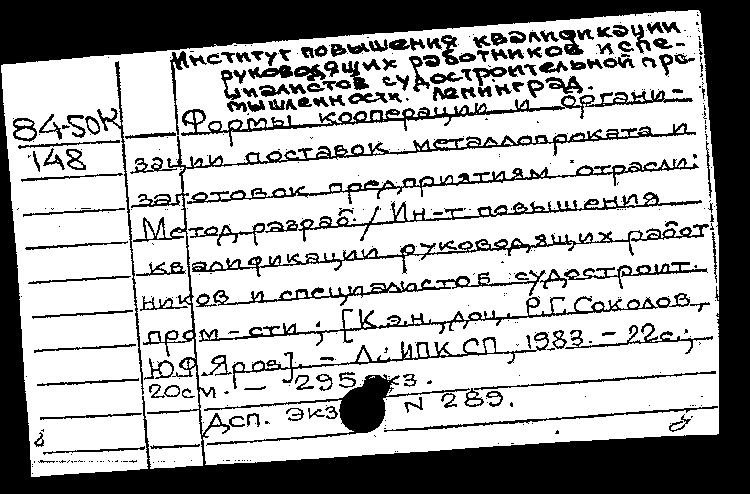 Институт повышения квалификации
руководящих работников и спе-
циалистов судостроительной про-
мышленности. Ленинград.
84-50К
148
Формы кооперации и органи-
зации поставок металлопроката и
заготовок предприятиям отрасли:
Метод. разраб. / Ин-т повышения
квалификации руководящих работ
ников и специалистов судостроит.
пром-сти; [К.э.н., доц. Р.Г. Соколов,
Ю.Ф. Яров]. - Л.: ИПК СП, 1983. - 22с.;
20см. - 295 экз.
Дсп. экз N 289.